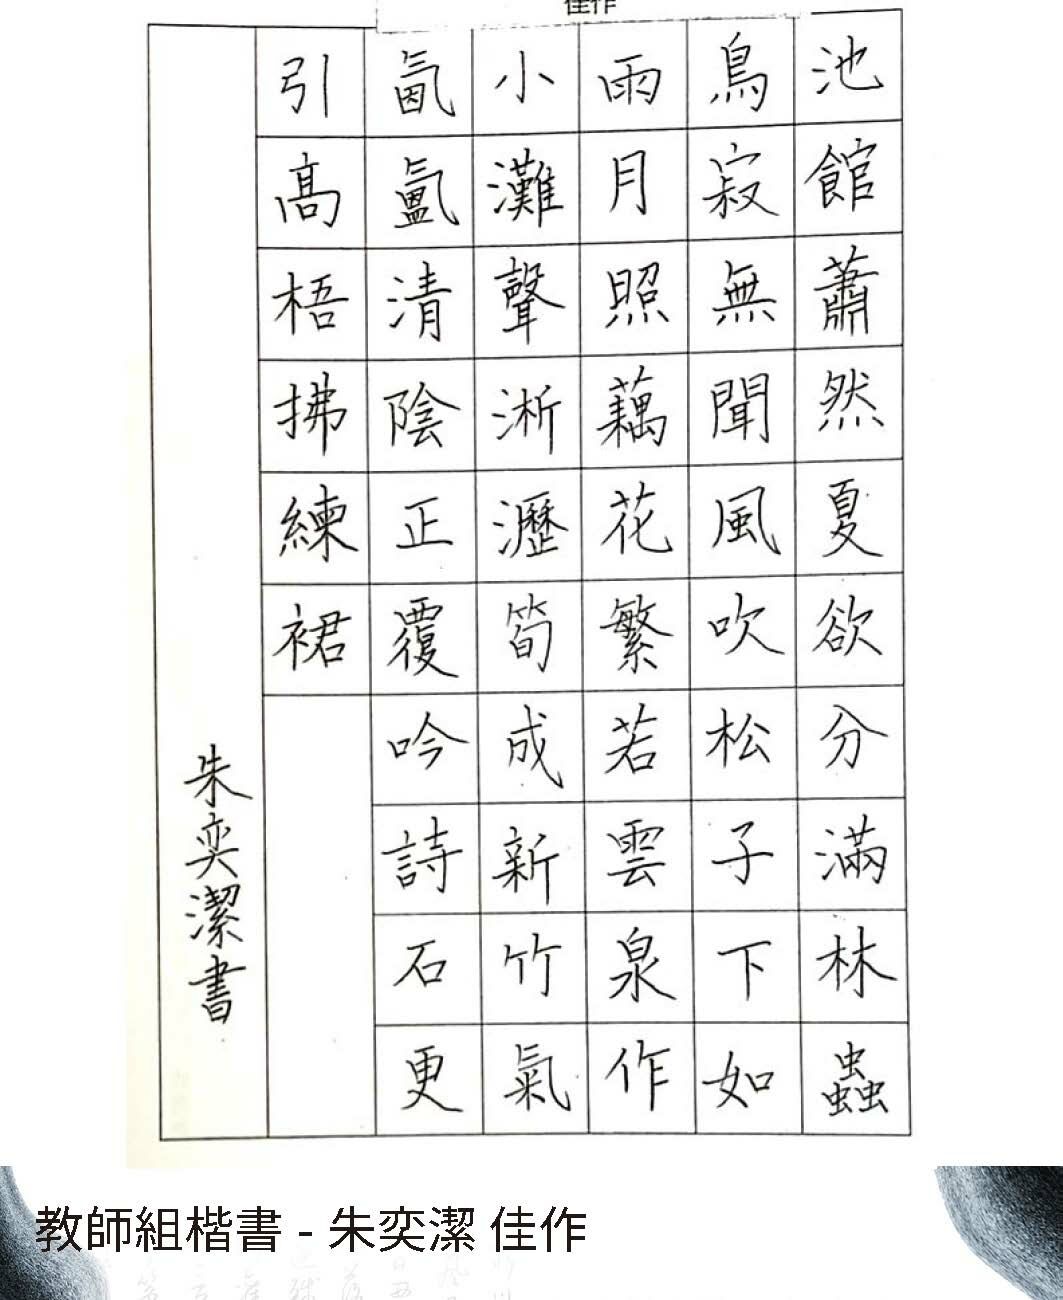 佳作
池館蕭然夏欲分滿林蟲
鳥寂無聞風吹松子下如
雨月照藕花繁若雲泉作
小灘聲淅瀝筍成新竹氣
氤氳清陰正覆吟詩石更
引高梧拂練裙
朱奕潔書
教師組楷書 - 朱奕潔 佳作